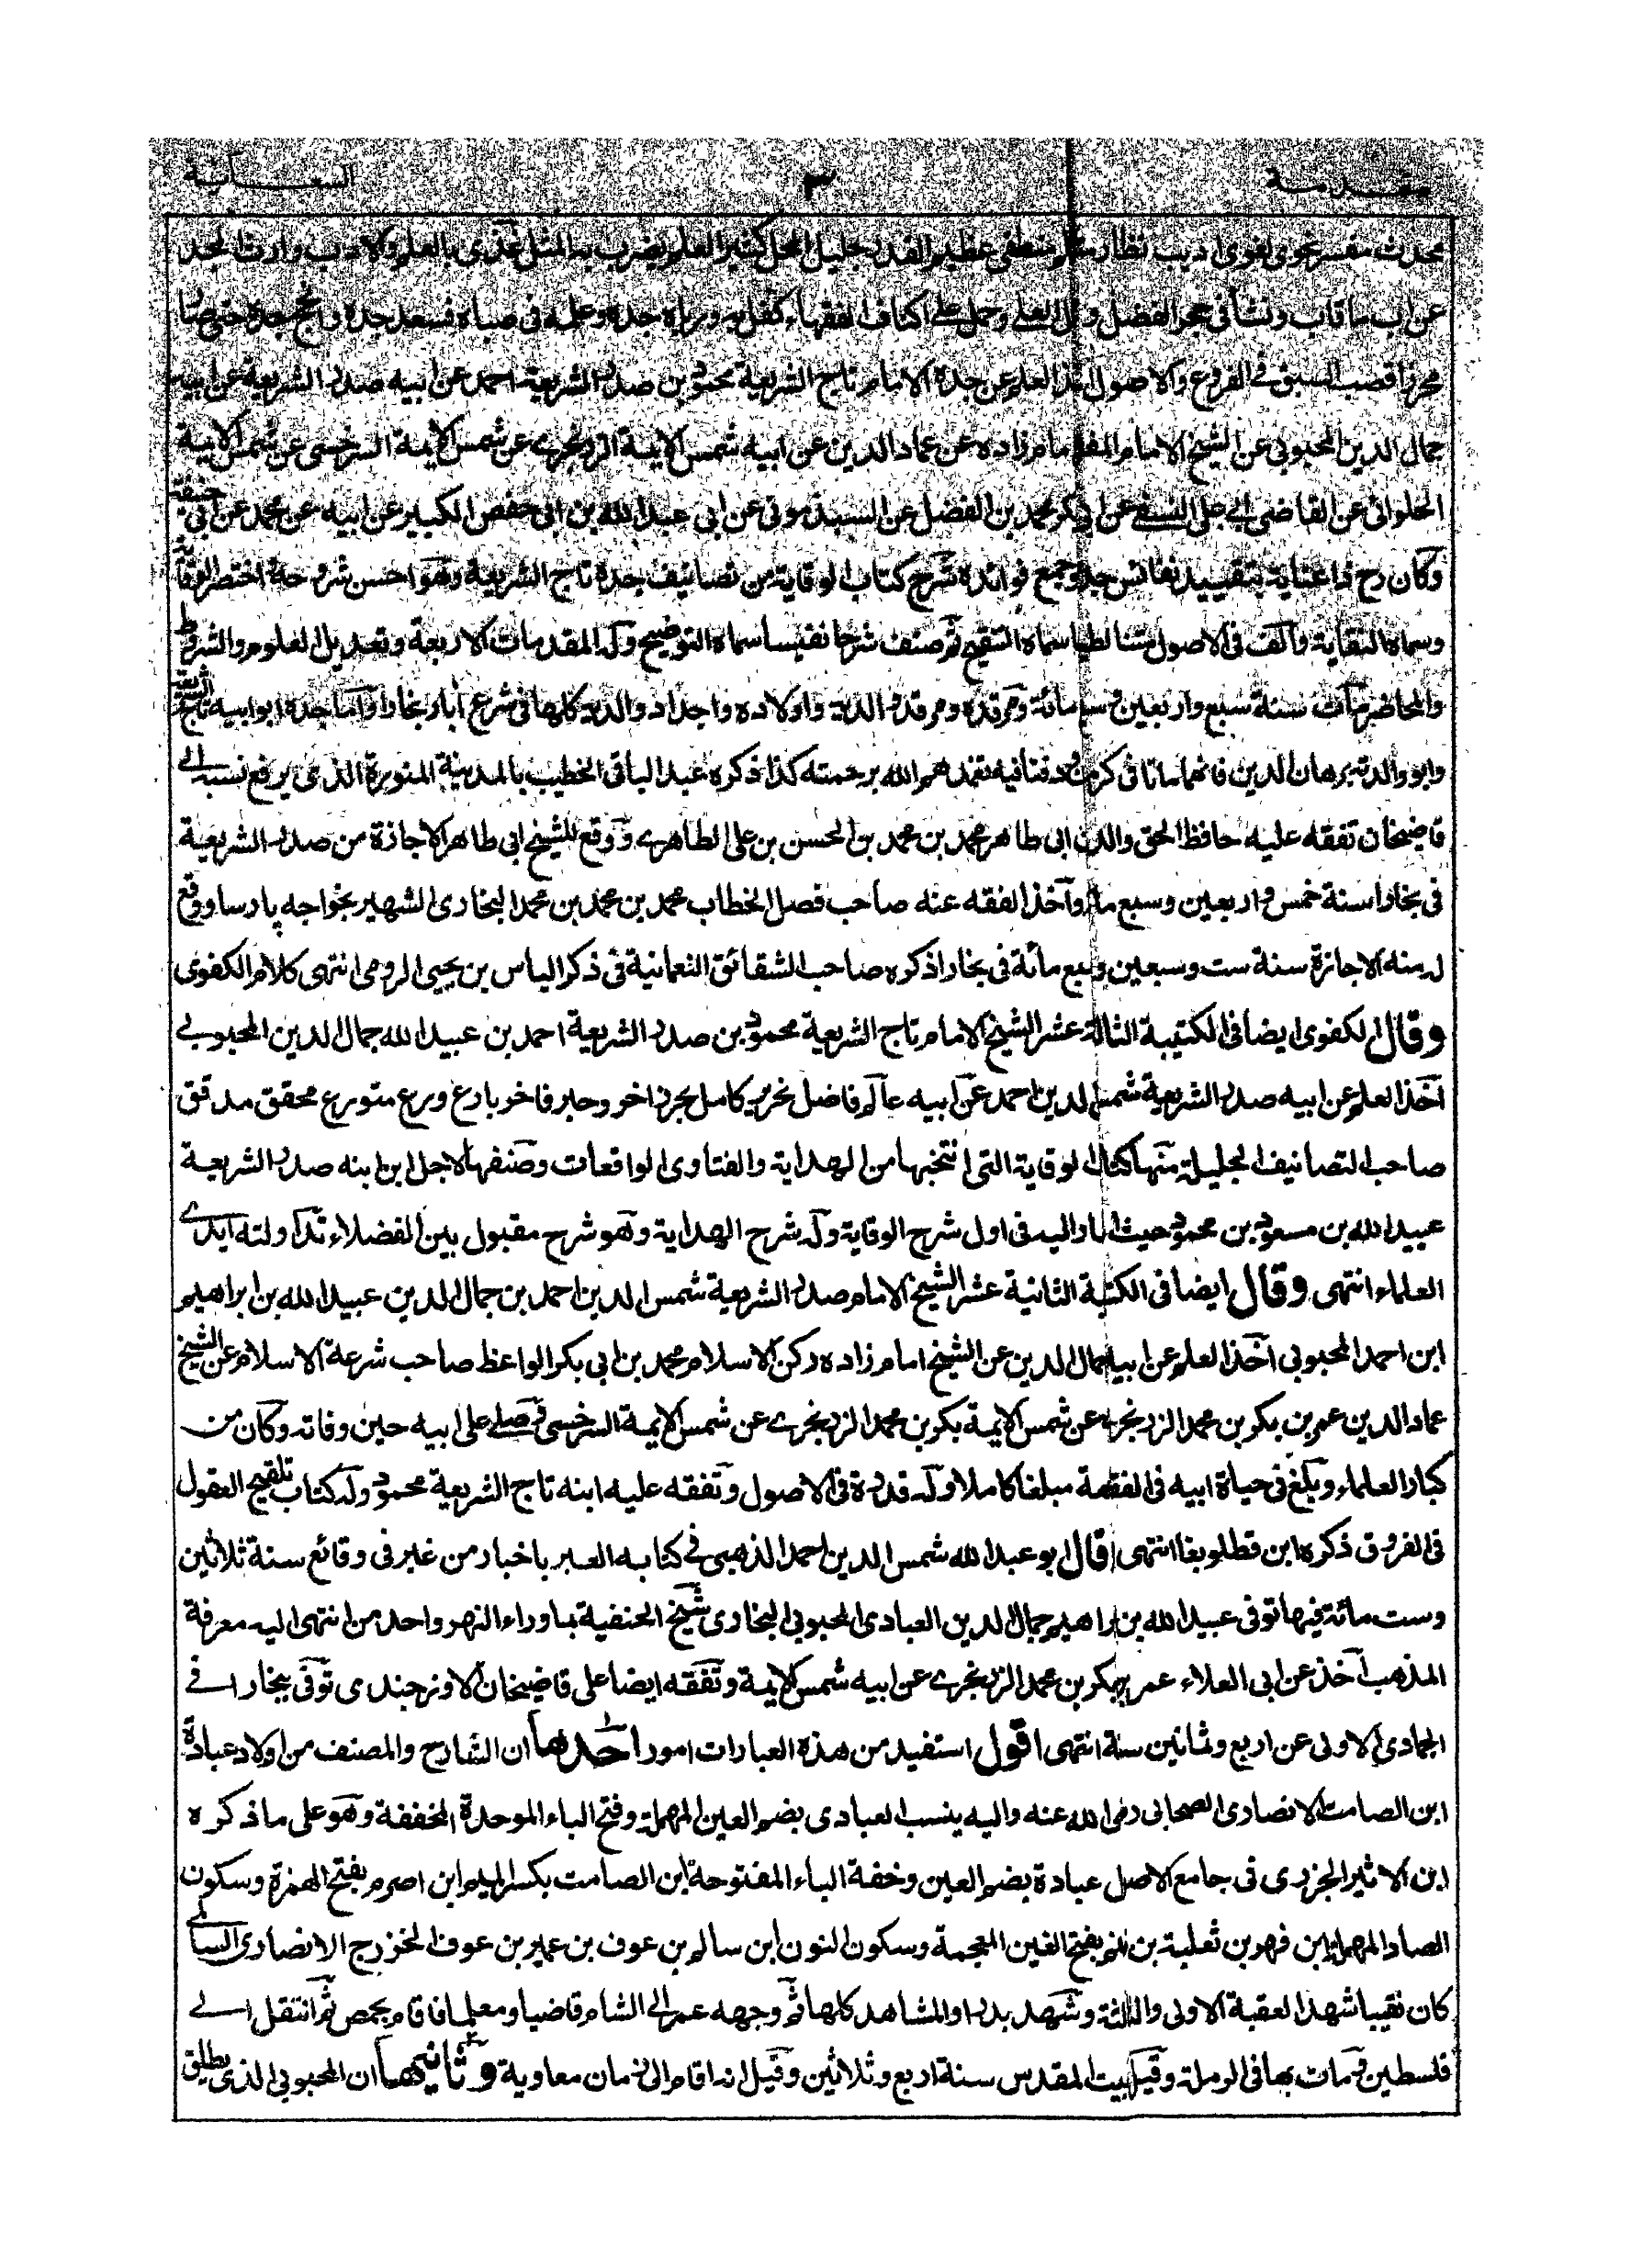 مقدمة ٣ السعاية
محدث مفسر نحوى لغوى اديب نظار متكلم منطقى عظيم القدر جليل المحل كثير العلم يضرب به المثل غذى بالعلم والادب وارث المجد
عن اب فاب ونشأ فى حجر الفضل ونال العلى وحمل على اكتاف الفقهاء كفله ورباه جده وعلمه فى صباه فسعد جده وانجح جده حتى صار
محرزا قصب السبق فى الفروع والاصول اخذ العلم عن جده الامام تاج الشريعة محمود بن صدر الشريعة احمد عن ابيه صدر الشريعة عن ابيه
جمال الدين المحبوبى عن الشيخ الامام المفتى امام زاده عن عماد الدين عن ابيه شمس الايمة الزرنجرى عن شمس الايمة السرخسى عن شمس الايمة
الحلوانى عن القاضى ابى على النسفى عن ابى بكر محمد بن الفضل عن السبذمونى عن ابى عبد الله بن ابى حفص الكبير عن ابيه عن محمد عن ابى حنيفة
وكان رح ذا عناية بتقييد نفائس جده وجمع فوائده شرح كتاب الوقاية من تصانيف جده تاج الشريعة وهو احسن شروحه ثم اختصر الوقاية
وسماه النقاية وألف فى الاصول متنا لطيفا سماه التنقيح ثم صنف شرحا نفيسا سماه التوضيح وله المقدمات الاربعة وتعديل العلوم والشروط
والمحاضر مات سنة سبع واربعين وسبعمائة ومرقده ومرقد والديه واولاده واجداد والديه كلها فى شرع آباد بخارا واما جده ابو ابيه تاج الشريعة
وابو والدته برهان الدين فانهما ماتا فى كرمان ودفنا فيه تغمدهم الله برحمته كذا ذكره عبد الباقى الخطيب بالمدينة المنورة الذى يرفع نسبه الى
قاضيخان تفقه عليه حافظ الحق والدين ابى طاهر محمد بن محمد بن الحسن بن على الطاهرى ووقع للشيخ ابى طاهر الاجازة من صدر الشريعة
فى بخارا سنة خمس واربعين وسبع مائة واخذ الفقه عنه صاحب فصل الخطاب محمد بن محمد بن محمد البخارى الشهير بخواجه پارسا ووقع
له منه الاجازة سنة ست وسبعين وسبع مائة فى بخارا ذكره صاحب الشقائق النعمانية فى ذكر الياس بن يحيى الرومى انتهى كلام الكفوى
وقال الكفوى ايضا فى الكتيبة الثالثة عشر الشيخ الامام تاج الشريعة محمود بن صدر الشريعة احمد بن عبيد الله جمال الدين المحبوبى
اخذ العلم عن ابيه صدر الشريعة شمس الدين احمد عن ابيه عالم فاضل نحرير كامل بحر زاخر وحبر فاخر بارع ورع متورع محقق مدقق
صاحب التصانيف الجليلة منها كتاب الوقاية التى انتخبها من الهداية والفتاوى الواقعات وصنفها لاجل ابن ابنه صدر الشريعة
عبيد الله بن مسعود بن محمود حيث اشار اليه فى اول شرح الوقاية وله شرح الهداية وهو شرح مقبول بين الفضلاء تداولته ايدى
العلماء انتهى وقال ايضا فى الكتيبة الثانية عشر الشيخ الامام صدر الشريعة شمس الدين احمد بن جمال الدين عبيد الله بن ابراهيم
ابن احمد المحبوبى اخذ العلم عن ابيه جمال الدين عن الشيخ امام زاده ركن الاسلام محمد بن ابى بكر الواعظ صاحب شرعة الاسلام عن الشيخ
عماد الدين عمر بن بكر بن محمد الزرنجرى عن شمس الايمة بكر بن محمد الزرنجرى عن شمس الايمة السرخسى وصلى على ابيه حين وفاته وكان من
كبار العلماء وبلغ فى حياة ابيه فى الفقه مبلغا كاملا وله قدرة فى الاصول وتفقه عليه ابنه تاج الشريعة محمود وله كتاب تلقيح العقول
فى الفروق ذكره ابن قطلوبغا انتهى قال ابو عبد الله شمس الدين احمد الذهبى فى كتابه العبر باخبار من غبر فى وقائع سنة ثلاثين
وست مائة فيها توفى عبيد الله بن ابراهيم جمال الدين العبادى المحبوبى البخارى شيخ الحنفية بما وراء النهر واحد من انتهى اليه معرفة
المذهب اخذ عن ابى العلاء عمر بن بكر بن محمد الزرنجرى عن ابيه شمس الايمة وتفقه ايضا على قاضيخان الاوزجندى توفى ببخارا فى
الجمادى الاولى عن اربع وثمانين سنة انتهى اقول استفيد من هذه العبارات امور احدها ان الشارح والمصنف من اولاد عبادة
ابن الصامت الانصارى الصحابى رضى الله عنه واليه ينسب العبادى بضم العين المهملة وفتح الباء الموحدة المخففة وهو على ما ذكره
ابن الاثير الجزرى فى جامع الاصل عبادة بضم العين وخفة الباء المفتوحة ابن الصامت بكسر الميم ابن اصرم بفتح الهمزة وسكون
الصاد المهملة ابن فهر بن ثعلبة بن غنم بفتح الغين المعجمة وسكون النون ابن سالم بن عوف بن عمير بن عوف الخزرج الانصارى السالمى
كان نقيبا شهد العقبة الاولى والثالثة وشهد بدرا والمشاهد كلها ثم وجهه عمر الى الشام قاضيا ومعلما فاقام بحمص ثم انتقل الى
فلسطين ومات بها فى الرملة وقيل ببيت المقدس سنة اربع وثلاثين وقيل انه اقام الى زمان معاوية وثانيها ان المحبوبى الذى يطلق